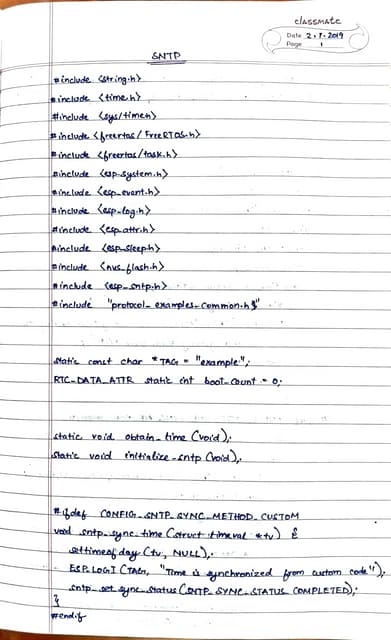 classmate
Date 2.7.2019
Page 1
SNTP
#include <string.h>
#include <time.h>
#include <sys/time.h>
#include <freertos/FreeRTOS.h>
#include <freertos/task.h>
#include <esp_system.h>
#include <esp_event.h>
#include <esp_log.h>
#include <esp_attr.h>
#include <esp_sleep.h>
#include <nvs_flash.h>
#include <esp_sntp.h>
#include "protocol_examples_common.h"
static const char *TAG = "example";
RTC_DATA_ATTR static int boot_count = 0;
static void obtain_time (void);
static void initialize_sntp (void);
#ifdef CONFIG_SNTP_SYNC_METHOD_CUSTOM
void sntp_sync_time (struct timeval *tv) {
settimeofday (tv, NULL);
ESP_LOGI (TAG, "Time is synchronized from custom code");
sntp_set_sync_status (SNTP_SYNC_STATUS_COMPLETED);
}
#endif